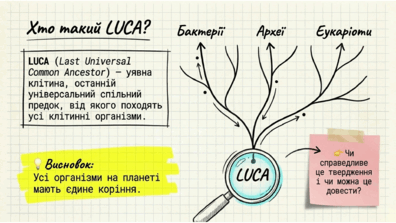 Хто такий LUCA?
Бактерії
Археї
Еукаріоти
LUCA (Last Universal
Common Ancestor) – уявна
клітина, останній
універсальний спільний
предок, від якого походять
усі клітинні організми.
Висновок:
Усі організми на планеті
мають єдине коріння.
LUCA
Чи
справедливе
це твердження
і чи можна це
довести?